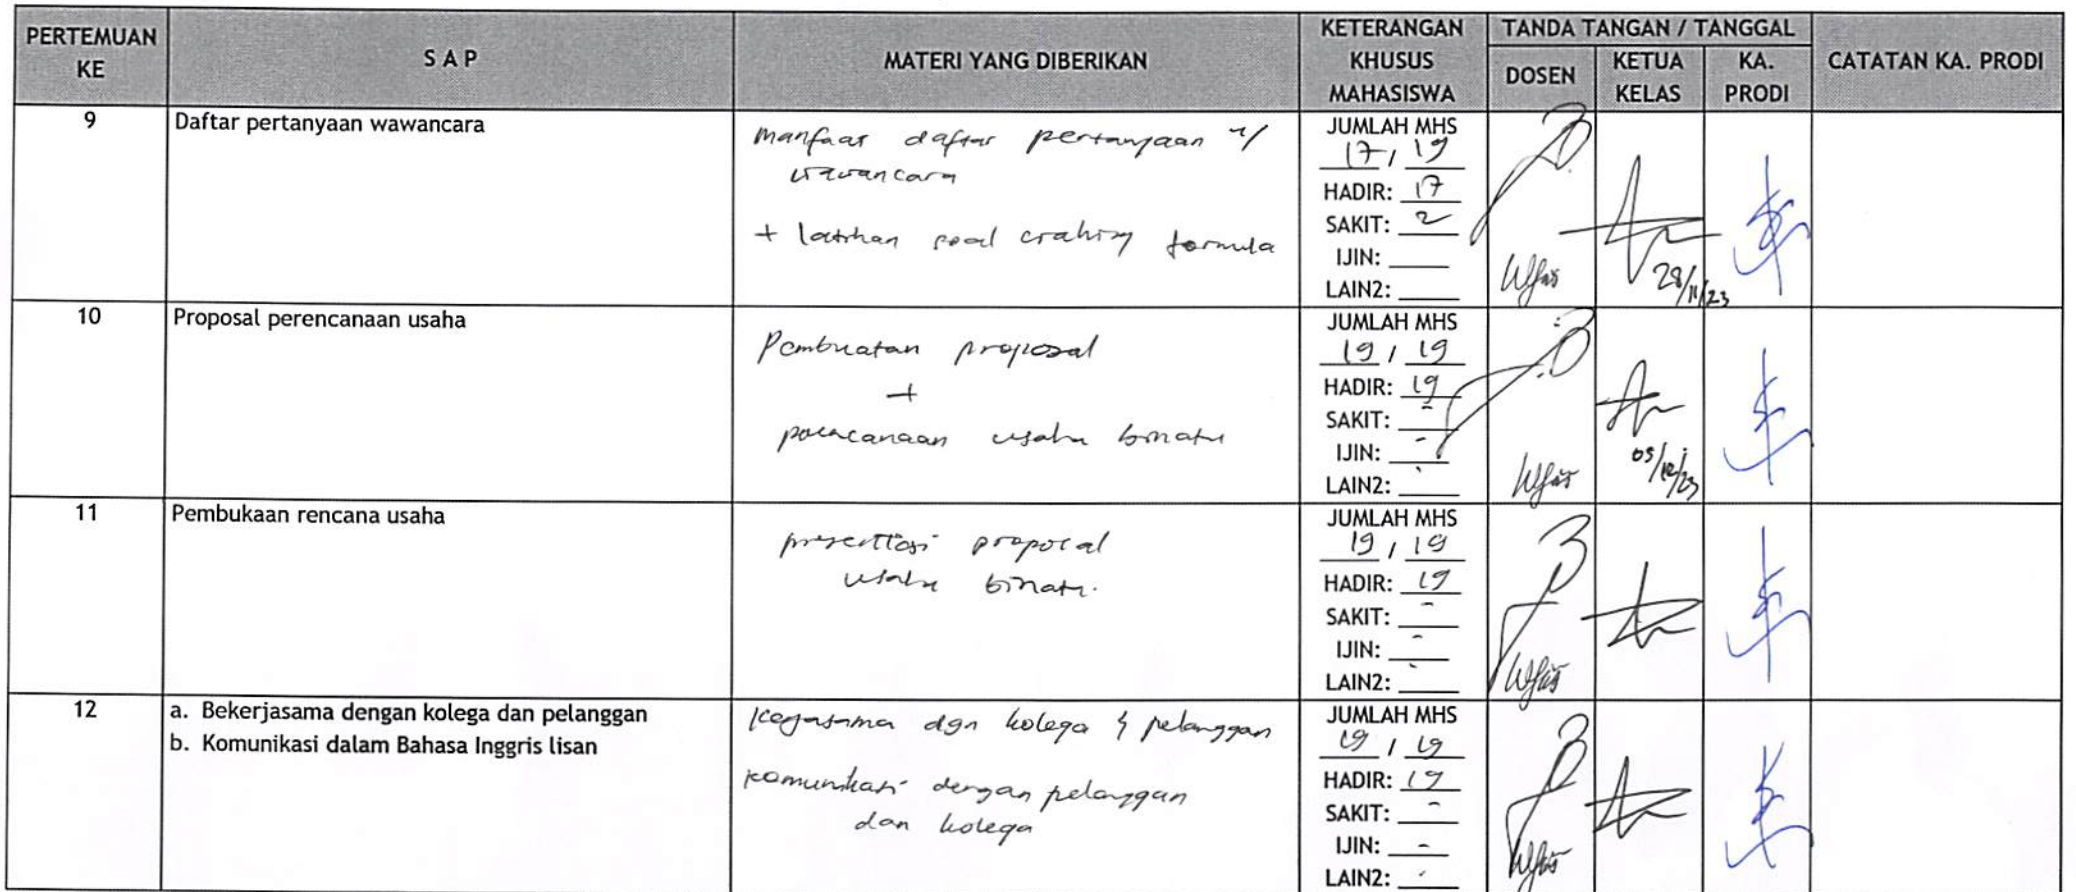 PERTEMUAN KE
S A P
MATERI YANG DIBERIKAN
KETERANGAN KHUSUS MAHASISWA
TANDA TANGAN / TANGGAL
DOSEN
KETUA KELAS
KA. PRODI
CATATAN KA. PRODI
9
Daftar pertanyaan wawancara
Manfaat daftar pertanyaan u/
wawancara
+ latihan soal formula
JUMLAH MHS
17 / 19
HADIR: 17
SAKIT: 2
IJIN:
LAIN2:
28/11/23
10
Proposal perencanaan usaha
Pembuatan proposal
+
perencanaan usaha binatu
JUMLAH MHS
19 / 19
HADIR: 19
SAKIT: -
IJIN: -
LAIN2: -
05/12/23
11
Pembukaan rencana usaha
presentasi proposal
usaha binatu.
JUMLAH MHS
19 / 19
HADIR: 19
SAKIT: -
IJIN: -
LAIN2: -
12
a. Bekerjasama dengan kolega dan pelanggan
b. Komunikasi dalam Bahasa Inggris lisan
Kerjasama dgn kolega & pelanggan
Komunikasi dengan pelanggan
dan kolega
JUMLAH MHS
19 / 19
HADIR: 19
SAKIT: -
IJIN: -
LAIN2: -